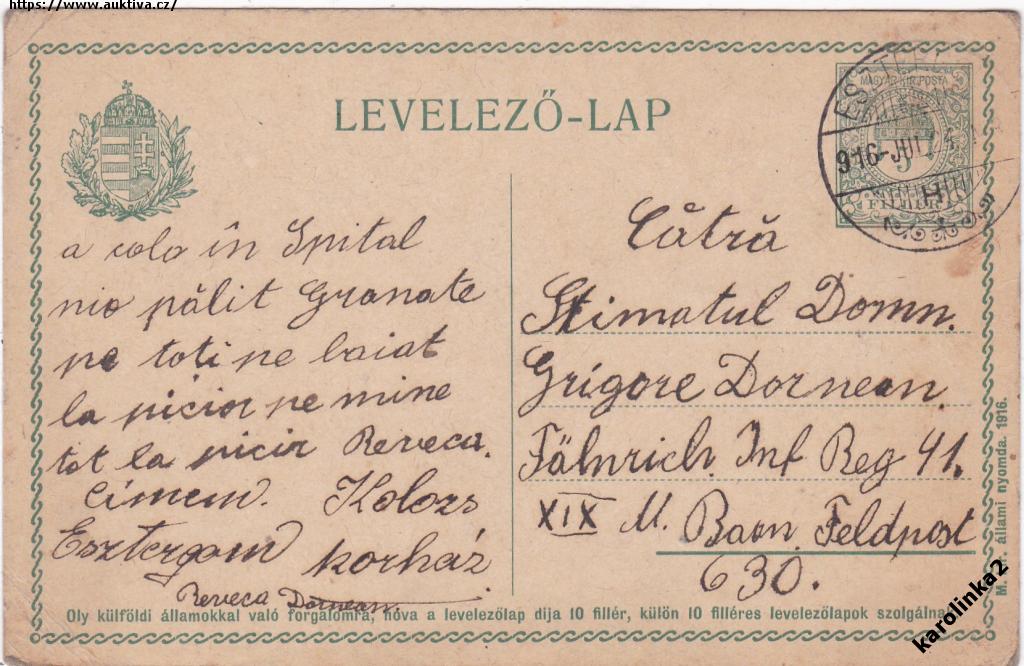 https://www.auktiva.cz/
LEVELEZŐ-LAP
MAGYAR KIR. POSTA
916-JUL 24
H
a colo în Spital
nio pălit Granate
pe toti pe baiat
la picior pe mine
tot la picir Reveca.
Címem. Kolozs
Esztergom korház
Reveca Dornean.
Cătră
Stimatul Domn.
Grigore Dornean.
Fähnrich. Inf Reg 41.
XIX M. Baon. Feldpost
630.
Oly külföldi államokkal való forgalomra, hova a levelezőlap dija 10 fillér, külön 10 filléres levelezőlapok szolgálnak
M. kir. állami nyomda. 1916.
karolinka2